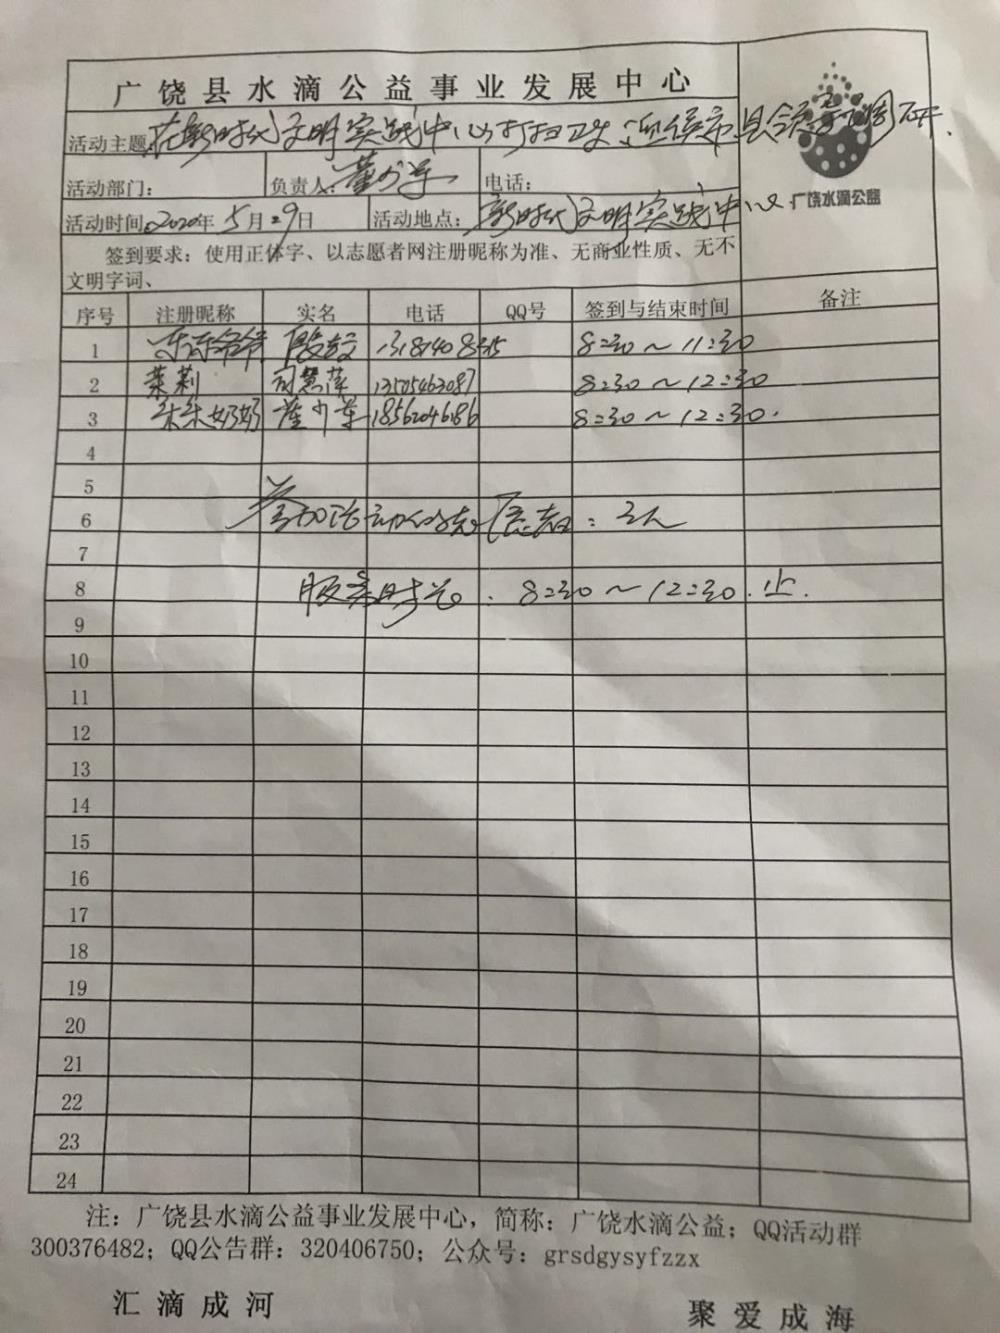 广饶县水滴公益事业发展中心
活动主题:在新时代文明实践中心打扫卫生,迎接市县领导调研.
活动部门: 负责人: 电话:
活动时间:2020年5月29日 活动地点:新时代文明实践中心
广饶水滴公益
签到要求:使用正体字、以志愿者网注册昵称为准、无商业性质、无不
文明字词、
序号 注册昵称 实名 电话 QQ号 签到与结束时间 备注
1 8:30~11:30
2 茉莉 司慧萍 13505463087 8:30~12:30
3 朵朵奶奶 18562046186 8:30~12:30.
4
5
6 参加活动的志愿者:3人
7
8 服务时长:8:30~12:30.止.
9
10
11
12
13
14
15
16
17
18
19
20
21
22
23
24
注:广饶县水滴公益事业发展中心,简称:广饶水滴公益;QQ活动群
300376482;QQ公告群:320406750;公众号:grsdgysyfzzx
汇滴成河 聚爱成海